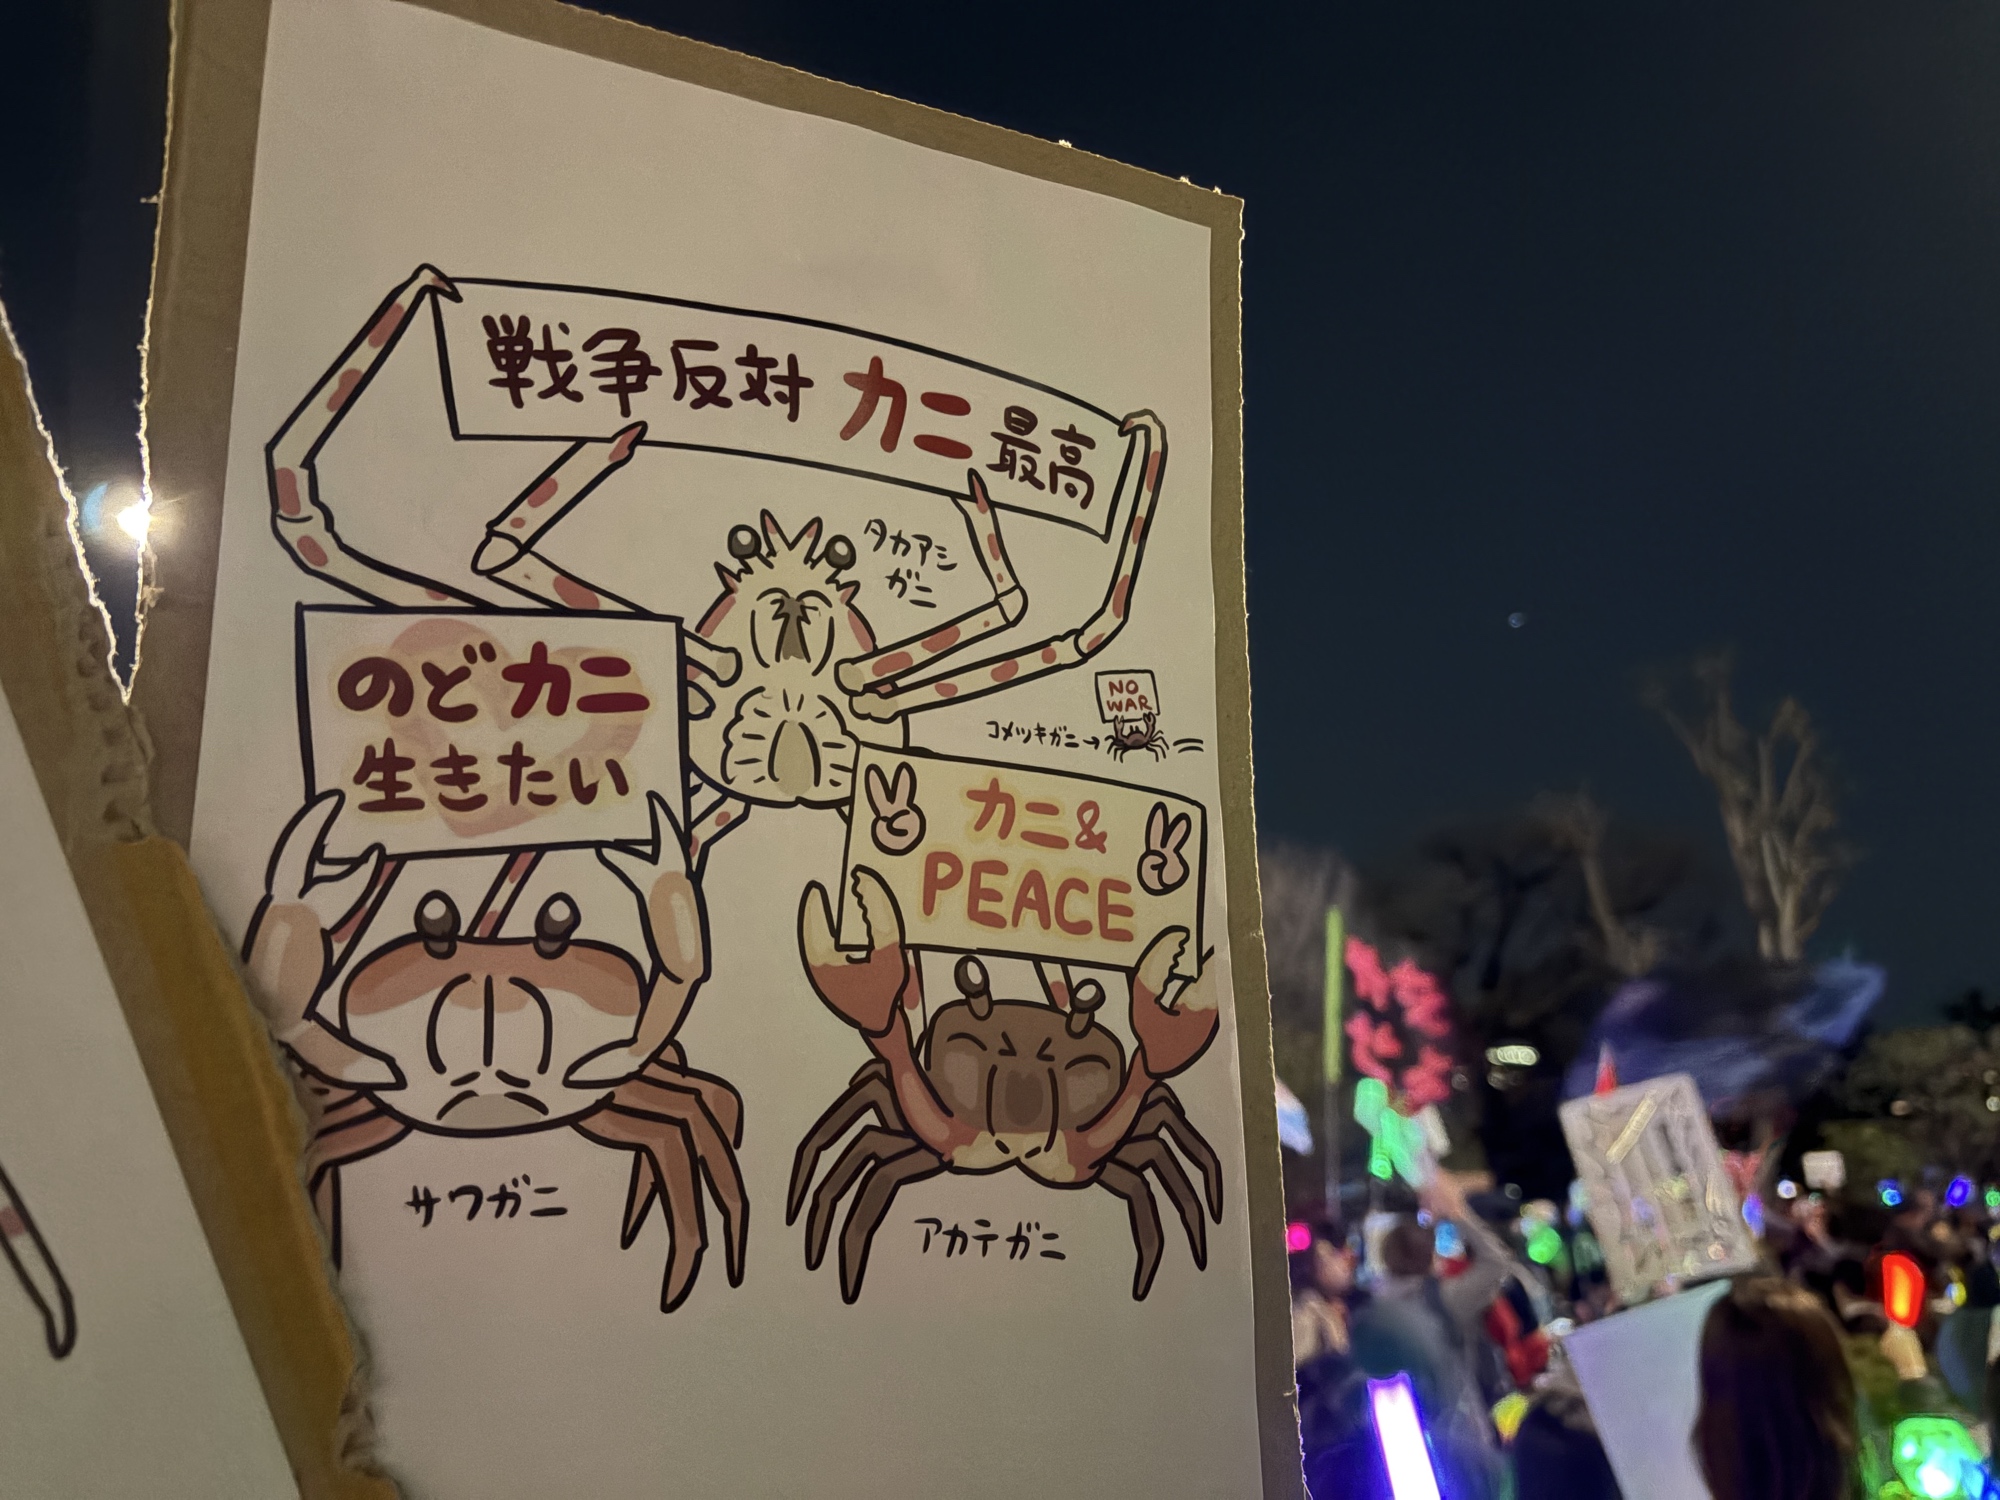 戦争反対 カニ 最高
タカアシ
ガニ
のどカニ
生きたい
NO
WAR
コメツキガニ→
カニ&
PEACE
サワガニ
アカテガニ